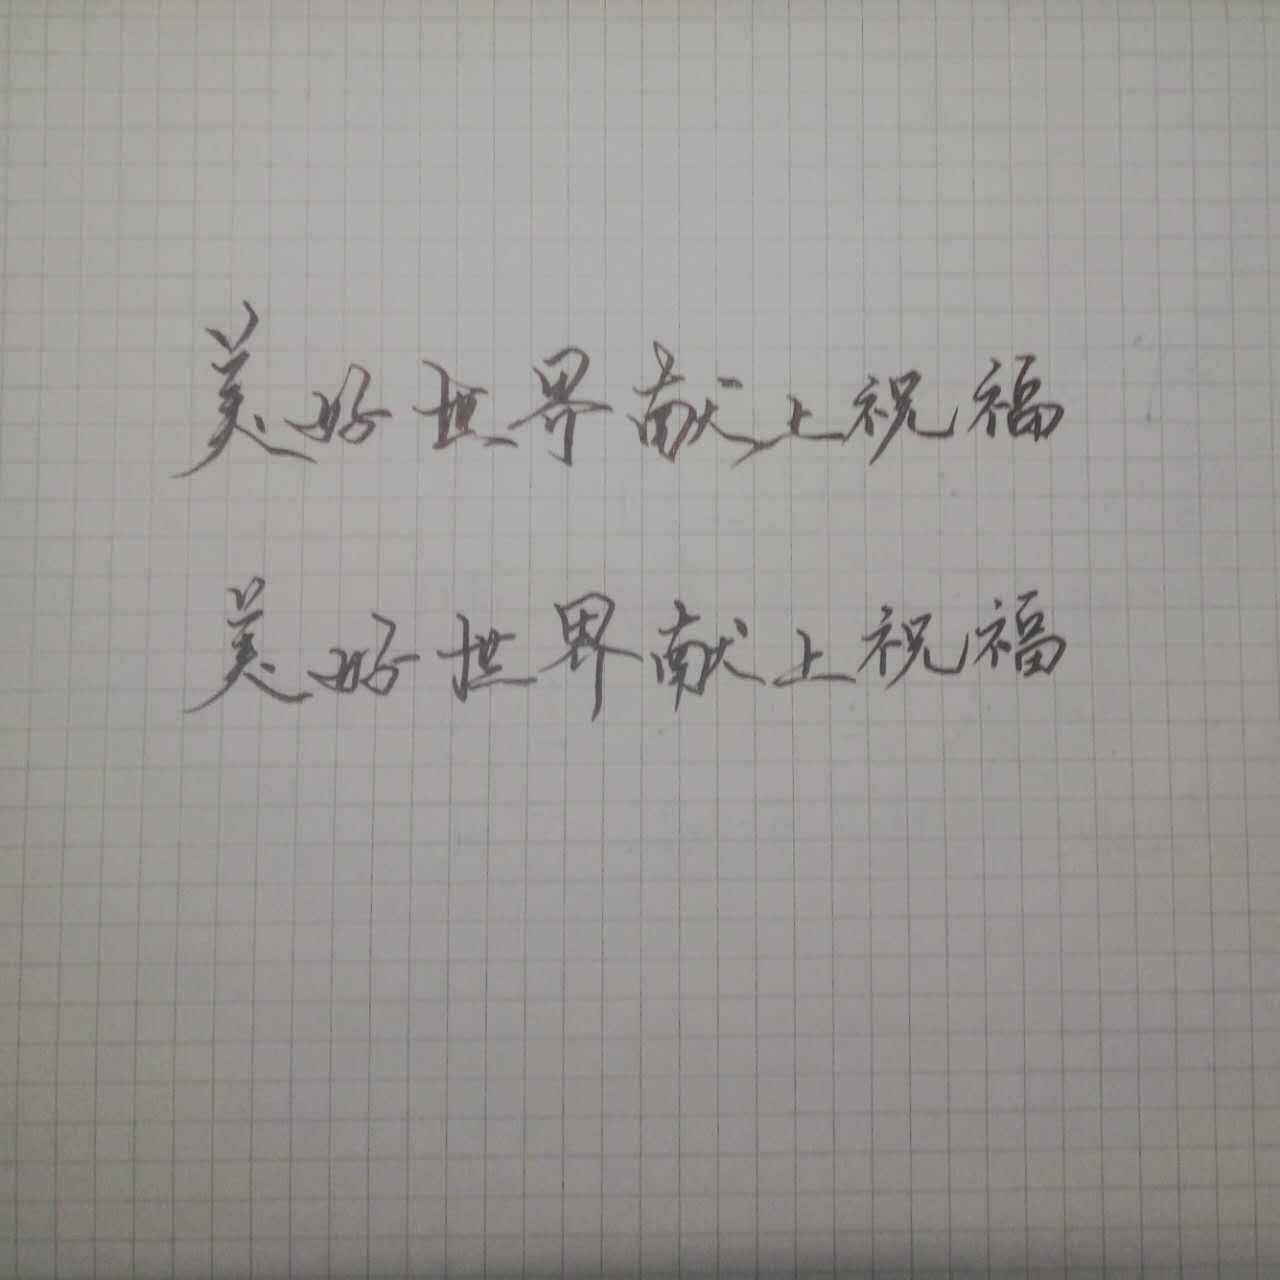 美好世界献上祝福
美好世界献上祝福